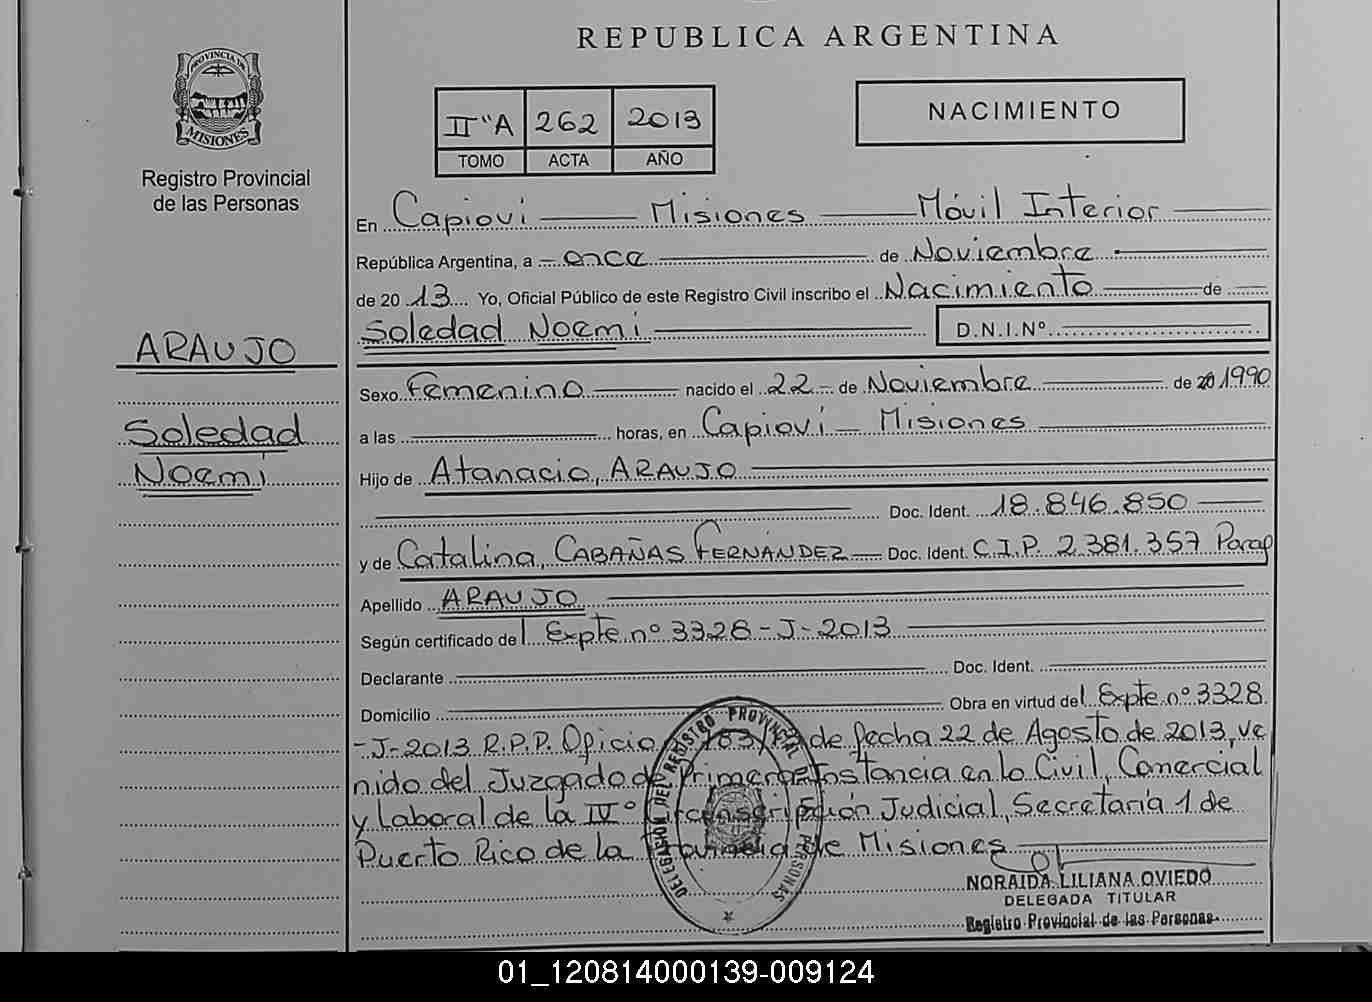 PROVINCIA DE
MISIONES
Registro Provincial
de las Personas
ARAUJO
Soledad
Noemí
REPUBLICA ARGENTINA
II "A 262 2013
TOMO ACTA AÑO
NACIMIENTO
En Capioví Misiones Móvil Interior
República Argentina, a once de Noviembre
de 20 13 Yo, Oficial Público de este Registro Civil inscribo el Nacimiento de
Soledad Noemí D.N.I.Nº
Sexo Femenino nacido el 22 de Noviembre de 20 1990
a las horas, en Capioví - Misiones
Hijo de Atanacio, ARAUJO
Doc. Ident. 18.846.850
y de Catalina, CABAÑAS FERNÁNDEZ Doc. Ident. C.I.P. 2.381.357 Parag
Apellido ARAUJO
Según certificado del Expte nº 3328-J-2013
Declarante Doc. Ident.
Domicilio Obra en virtud del Expte nº 3328
-J-2013 R.P.P. Oficio de fecha 22 de Agosto de 2013, ve
nido del Juzgado de Primera Instancia en lo Civil, Comercial
y Laboral de la IVº Circunscripción Judicial, Secretaría 1 de
Puerto Rico de la Provincia de Misiones
DELEGACION DEL REGISTRO PROVINCIAL DE PERSONAS
NORAIDA LILIANA OVIEDO
DELEGADA TITULAR
Registro Provincial de las Personas
01_120814000139-009124